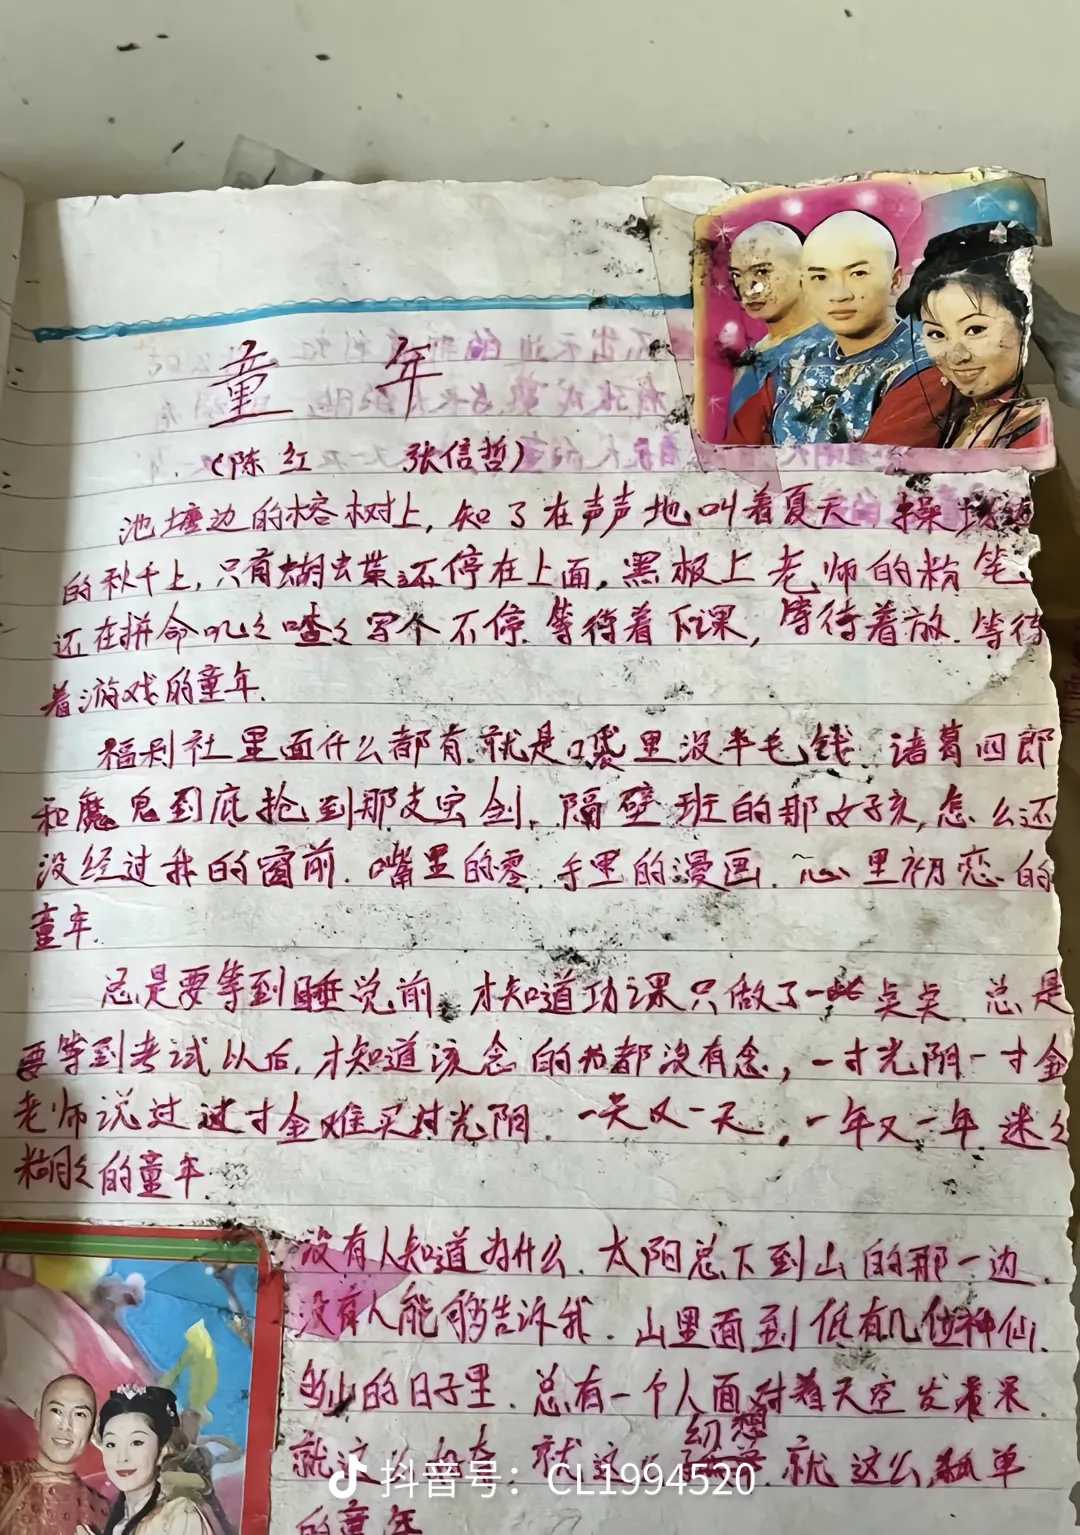 童年
(陈红 张信哲)
池塘边的榕树上,知了在声声地叫着夏天 操场边
的秋千上,只有蝴蝶还停在上面,黑板上老师的粉笔
还在拼命叽々喳々写个不停.等待着下课,等待着放.等待
着游戏的童年.
福利社里面什么都有.就是口袋里没半毛钱.诸葛四郎
和魔鬼到底抢到那支宝剑.隔壁班的那女孩,怎么还
没经过我的窗前.嘴里的零.手里的漫画.心里初恋的
童年.
总是要等到睡觉前,才知道功课只做了一点点.总是
要等到考试以后,才知道该念的书都没有念,一寸光阴一寸金
老师说过过寸金难买寸光阴.一天又一天.一年又一年.迷々
糊々的童年.
没有人知道为什么.太阳总下到山的那一边.
没有人能够告诉我.山里面到低有几位神仙.
的日子里.总有一个人面对着天空发着呆.
幻想
就这 就这 就这么孤单
的童年
抖音号:CL1994520